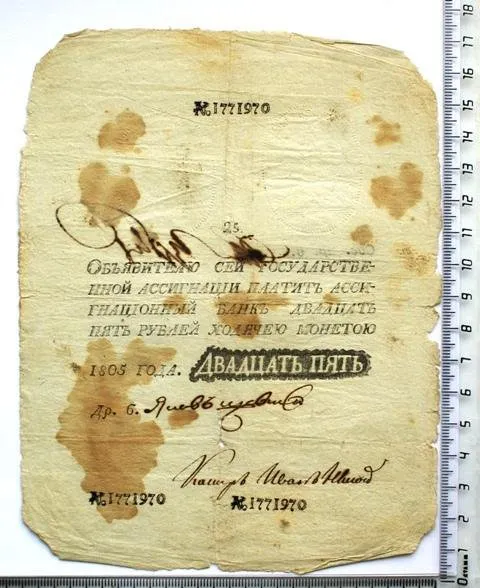 №1771970
25.
ОБЪЯВИТЕЛЮ СЕЙ ГОСУДАРСТВЕ-
ННОЙ АССИГНАЦІИ ПЛАТИТЪ АССИ-
ГНАЦІОННЫЙ БАНКЪ ДВАДЦАТЬ
ПЯТЬ РУБЛЕЙ ХОДЯЧЕЮ МОНЕТОЮ
1805 ГОДА. ДВАДЦАТЬ ПЯТЬ
Др. 6.
Касиръ Иванъ
№1771970 №1771970
18
17
16
15
14
13
12
11
10
9
8
7
6
5
4
3
2
1
0